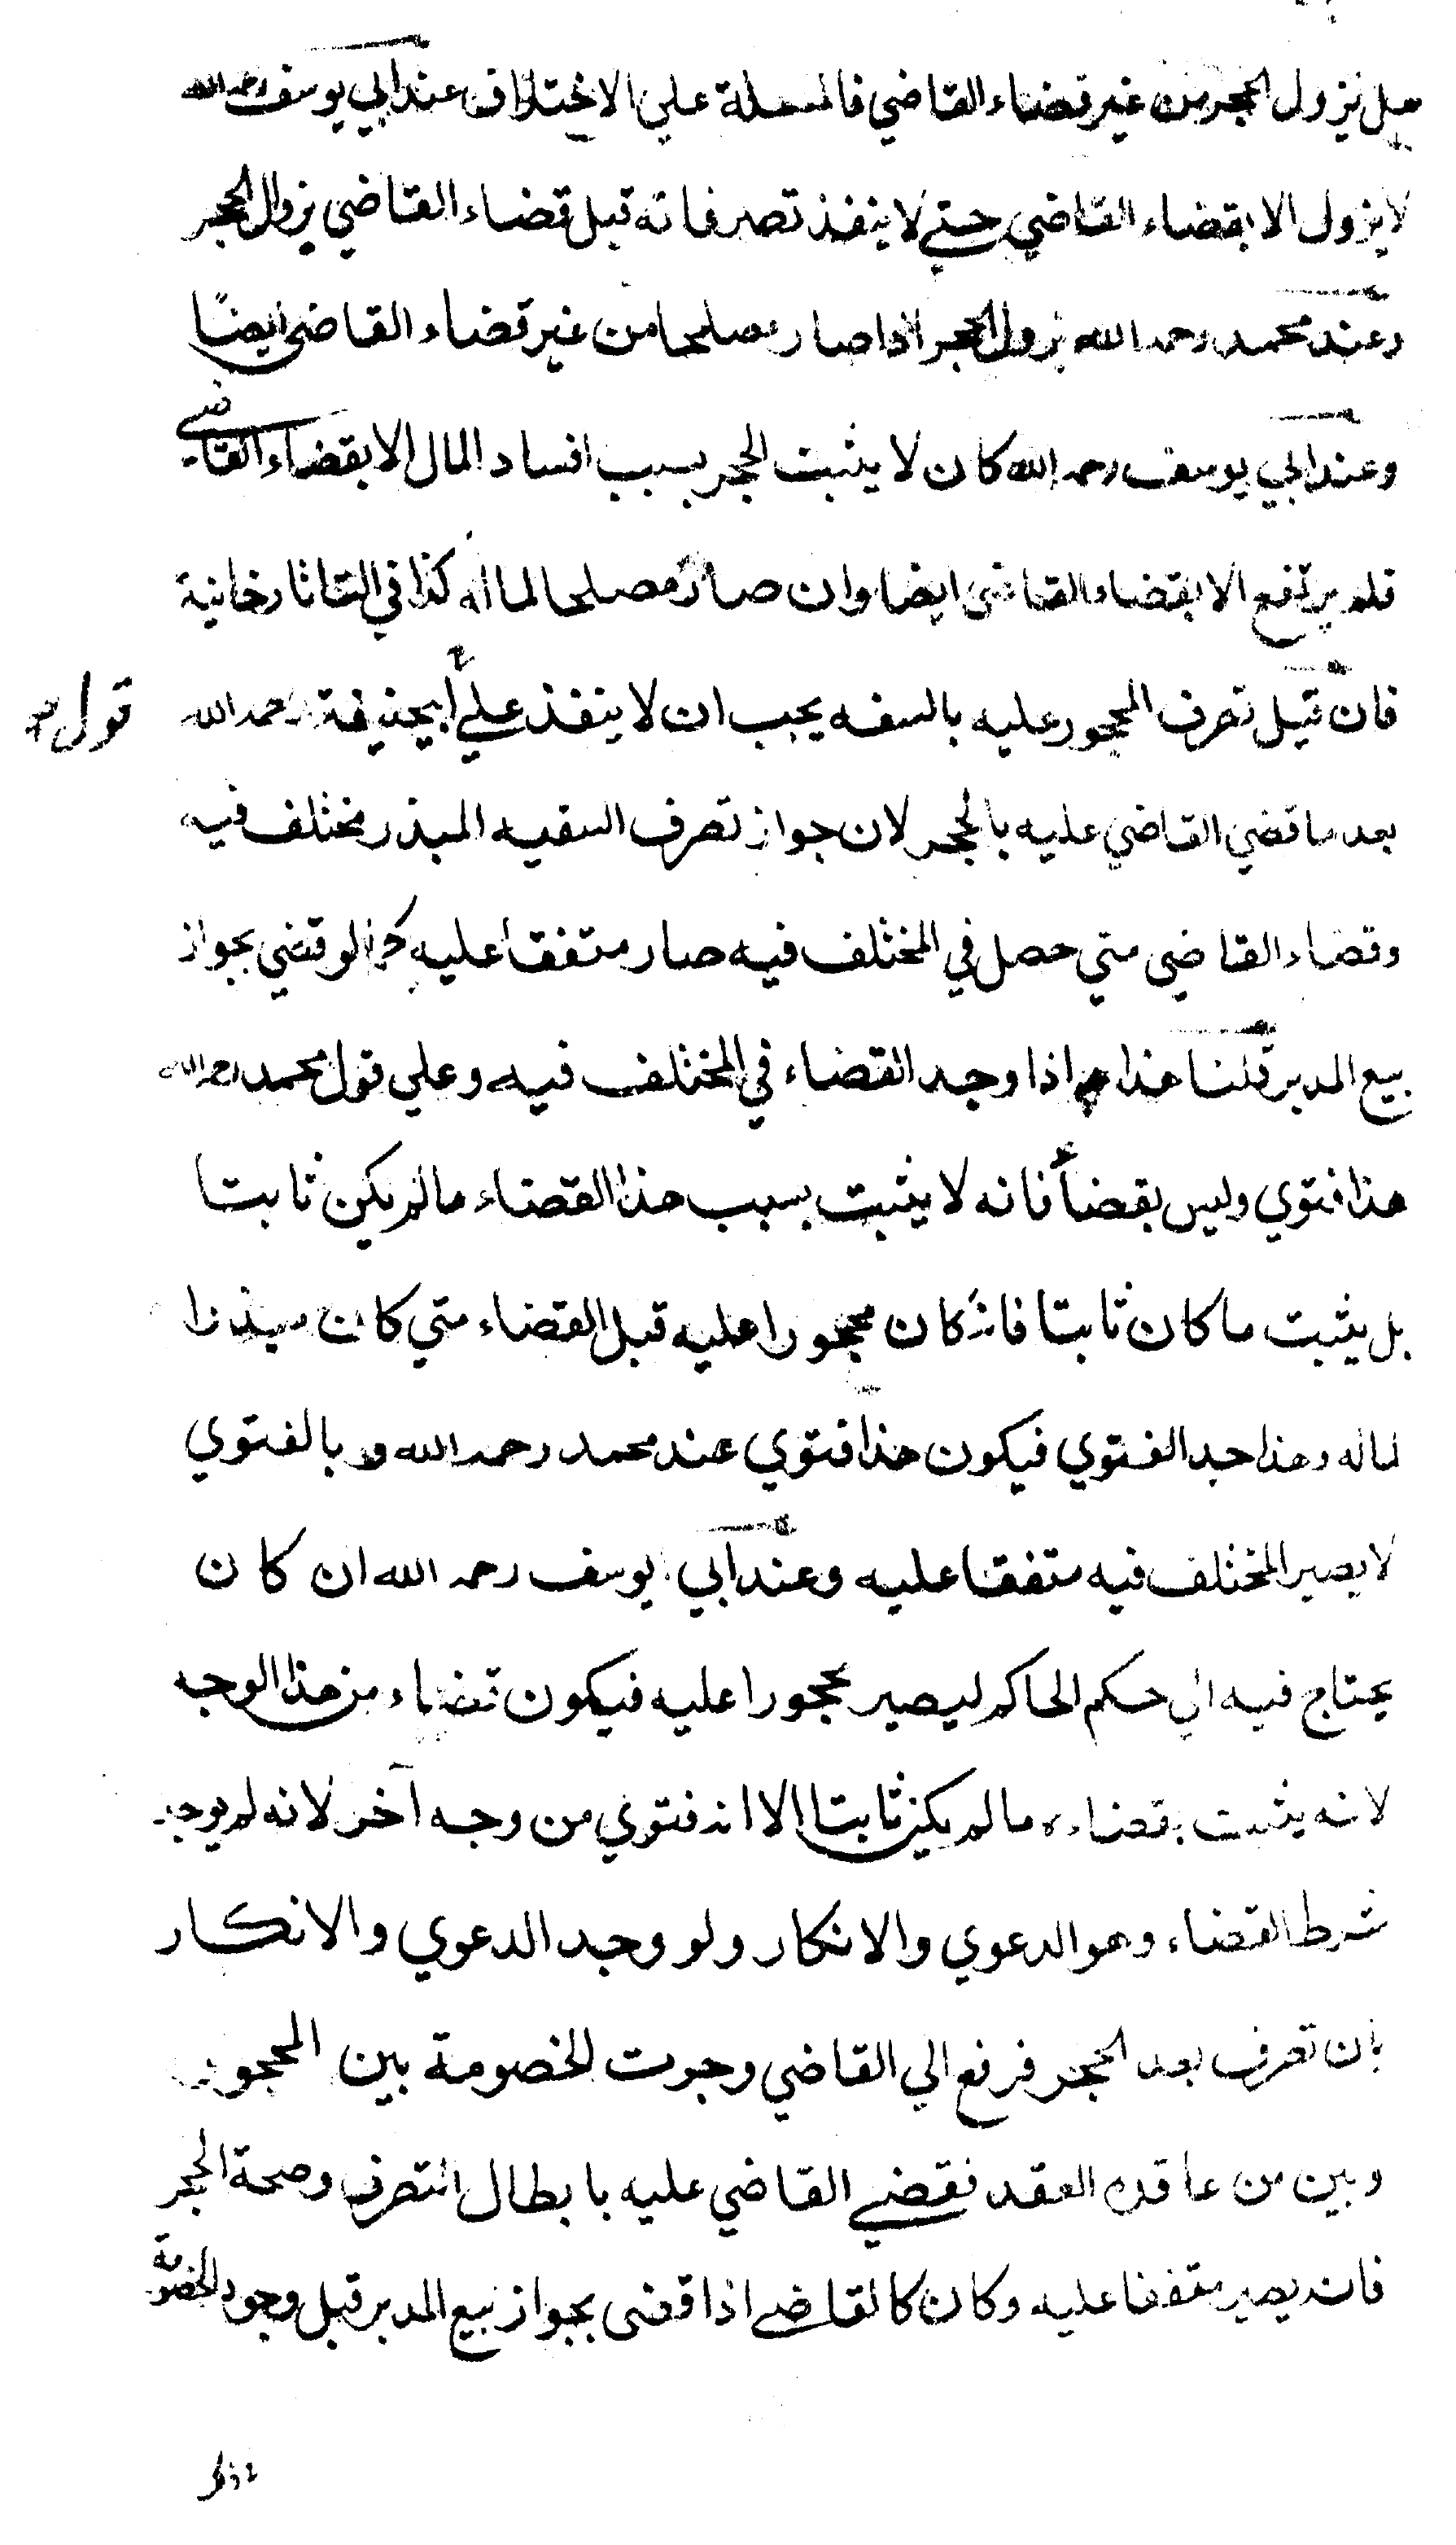 هل يزول الحجر من غير قضاء القاضي فالمسئلة علي الاختلاف عند ابي يوسف رحمه الله
لا يزول الا بقضاء القاضي حتي لا ينفذ تصرفاته قبل قضاء القاضي بزوال الحجر
وعند محمد رحمه الله يزول الحجر اذا صار مصلحا من غير قضاء القاضي ايضًا
وعند ابي يوسف رحمه الله كان لا يثبت الحجر بسبب افساد المال الا بقضاء القاضي
فلم يرتفع الا بقضاء القاضي ايضا وان صار مصلحا لماله كذا في التاتارخانية
فان قيل تصرف المحجور عليه بالسفه يجب ان لا ينفذ علي ابيحنيفة رحمه الله
قول
بعد ما قضي القاضي عليه بالحجر لان جواز تصرف السفيه المبذر مختلف فيه
وقضاء القاضي متي حصل في المختلف فيه صار متفقا عليه كما لو قضي بجواز
بيع المدبر قلنا هذا اذا وجد القضاء في المختلف فيه وعلي قول محمد رحمه الله
هذا فتوي وليس بقضأ فانه لا يثبت بسبب هذا القضاء مالم يكن ثابتا
بل يثبت ما كان ثابتا فانه كان محجورا عليه قبل القضاء متي كان مبذرا
لماله وهذا حد الفتوي فيكون هذا فتوي عند محمد رحمه الله وبالفتوي
لا يصير المختلف فيه متفقا عليه وعند ابي يوسف رحمه الله ان كان
يحتاج فيه الي حكم الحاكم ليصير محجورا عليه فيكون قضاء من هذا الوجه
لانه يثبت بقضاءه مالم يكن ثابتا الا انه فتوي من وجه آخر لانه لم يوجد
شرط القضاء وهو الدعوي والانكار ولو وجد الدعوي والانكار
بان تصرف بعد الحجر فرفع الي القاضي وجرت الخصومة بين المحجور
وبين من عاقده العقد فقضي القاضي عليه بابطال التصرف وصحة الحجر
فانه يصير متفقا عليه وكان كالقاضي اذا قضي بجواز بيع المدبر قبل وجود الخصومة